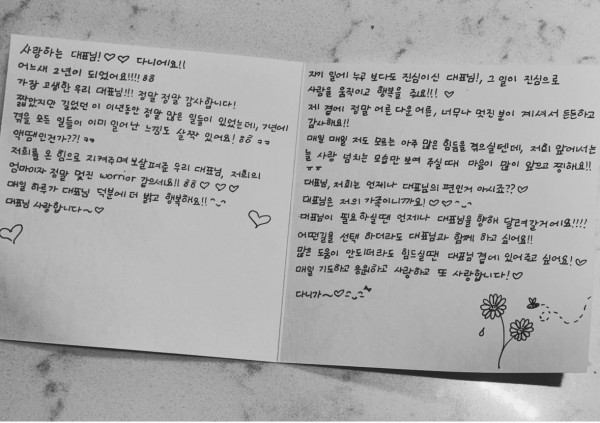 사랑하는 대표님!♡♡ 다니에요!!
어느새 2년이 되었어요!!!! 88
가장 고생한 우리 대표님!!! 정말 정말 감사합니다!
짧았지만 길었던 이 이년동안 정말 많은 일들이 있었는데, 7년에
겪을 모든 일들이 이미 일어난 느낌도 살짝 있어요! ㅎㅎ ㅋㅋ
액땜인건가???! ㅋㅋ
저희를 온 힘으로 지켜주며 보살펴준 우리 대표님, 저희의
엄마이자 정말 멋진 worrior 같으세요!! 88 ♡ ♡ ♡
매일 하루가 대표님 덕분에 더 밝고 행복해요!! ^_^
대표님 사랑합니다~♡
자기 일에 누구 보다도 진심이신 대표님!, 그 일이 진심으로
사람을 움직이고 행복을 줘요!!! ♡
제 곁에 정말 어른 다운 어른, 너무나 멋진 분이 계셔서 든든하고
감사해요!!
매일 매일 저도 모르는 아주 많은 힘듦을 겪으실텐데, 저희 앞에서는
늘 사랑 넘치는 모습만 보여 주실 때 마음이 많이 아프고 찡해요!!
ㅠㅠ
대표님, 저희는 언제나 대표님의 편인거 아시죠??♡
대표님은 저의 가족이니까요! ♡♡ ^_^
대표님이 필요하실땐 언제나 대표님을 향해 달려갈거에요!!!!
어떤길을 선택 하더라도 대표님과 함께 하고 싶어요!!
많은 도움이 안되더라도 힘드실땐 대표님 곁에 있어주고 싶어요!♡
매일 기도하고 응원하고 사랑하고 또 사랑합니다!♡
다니가~♡^_^